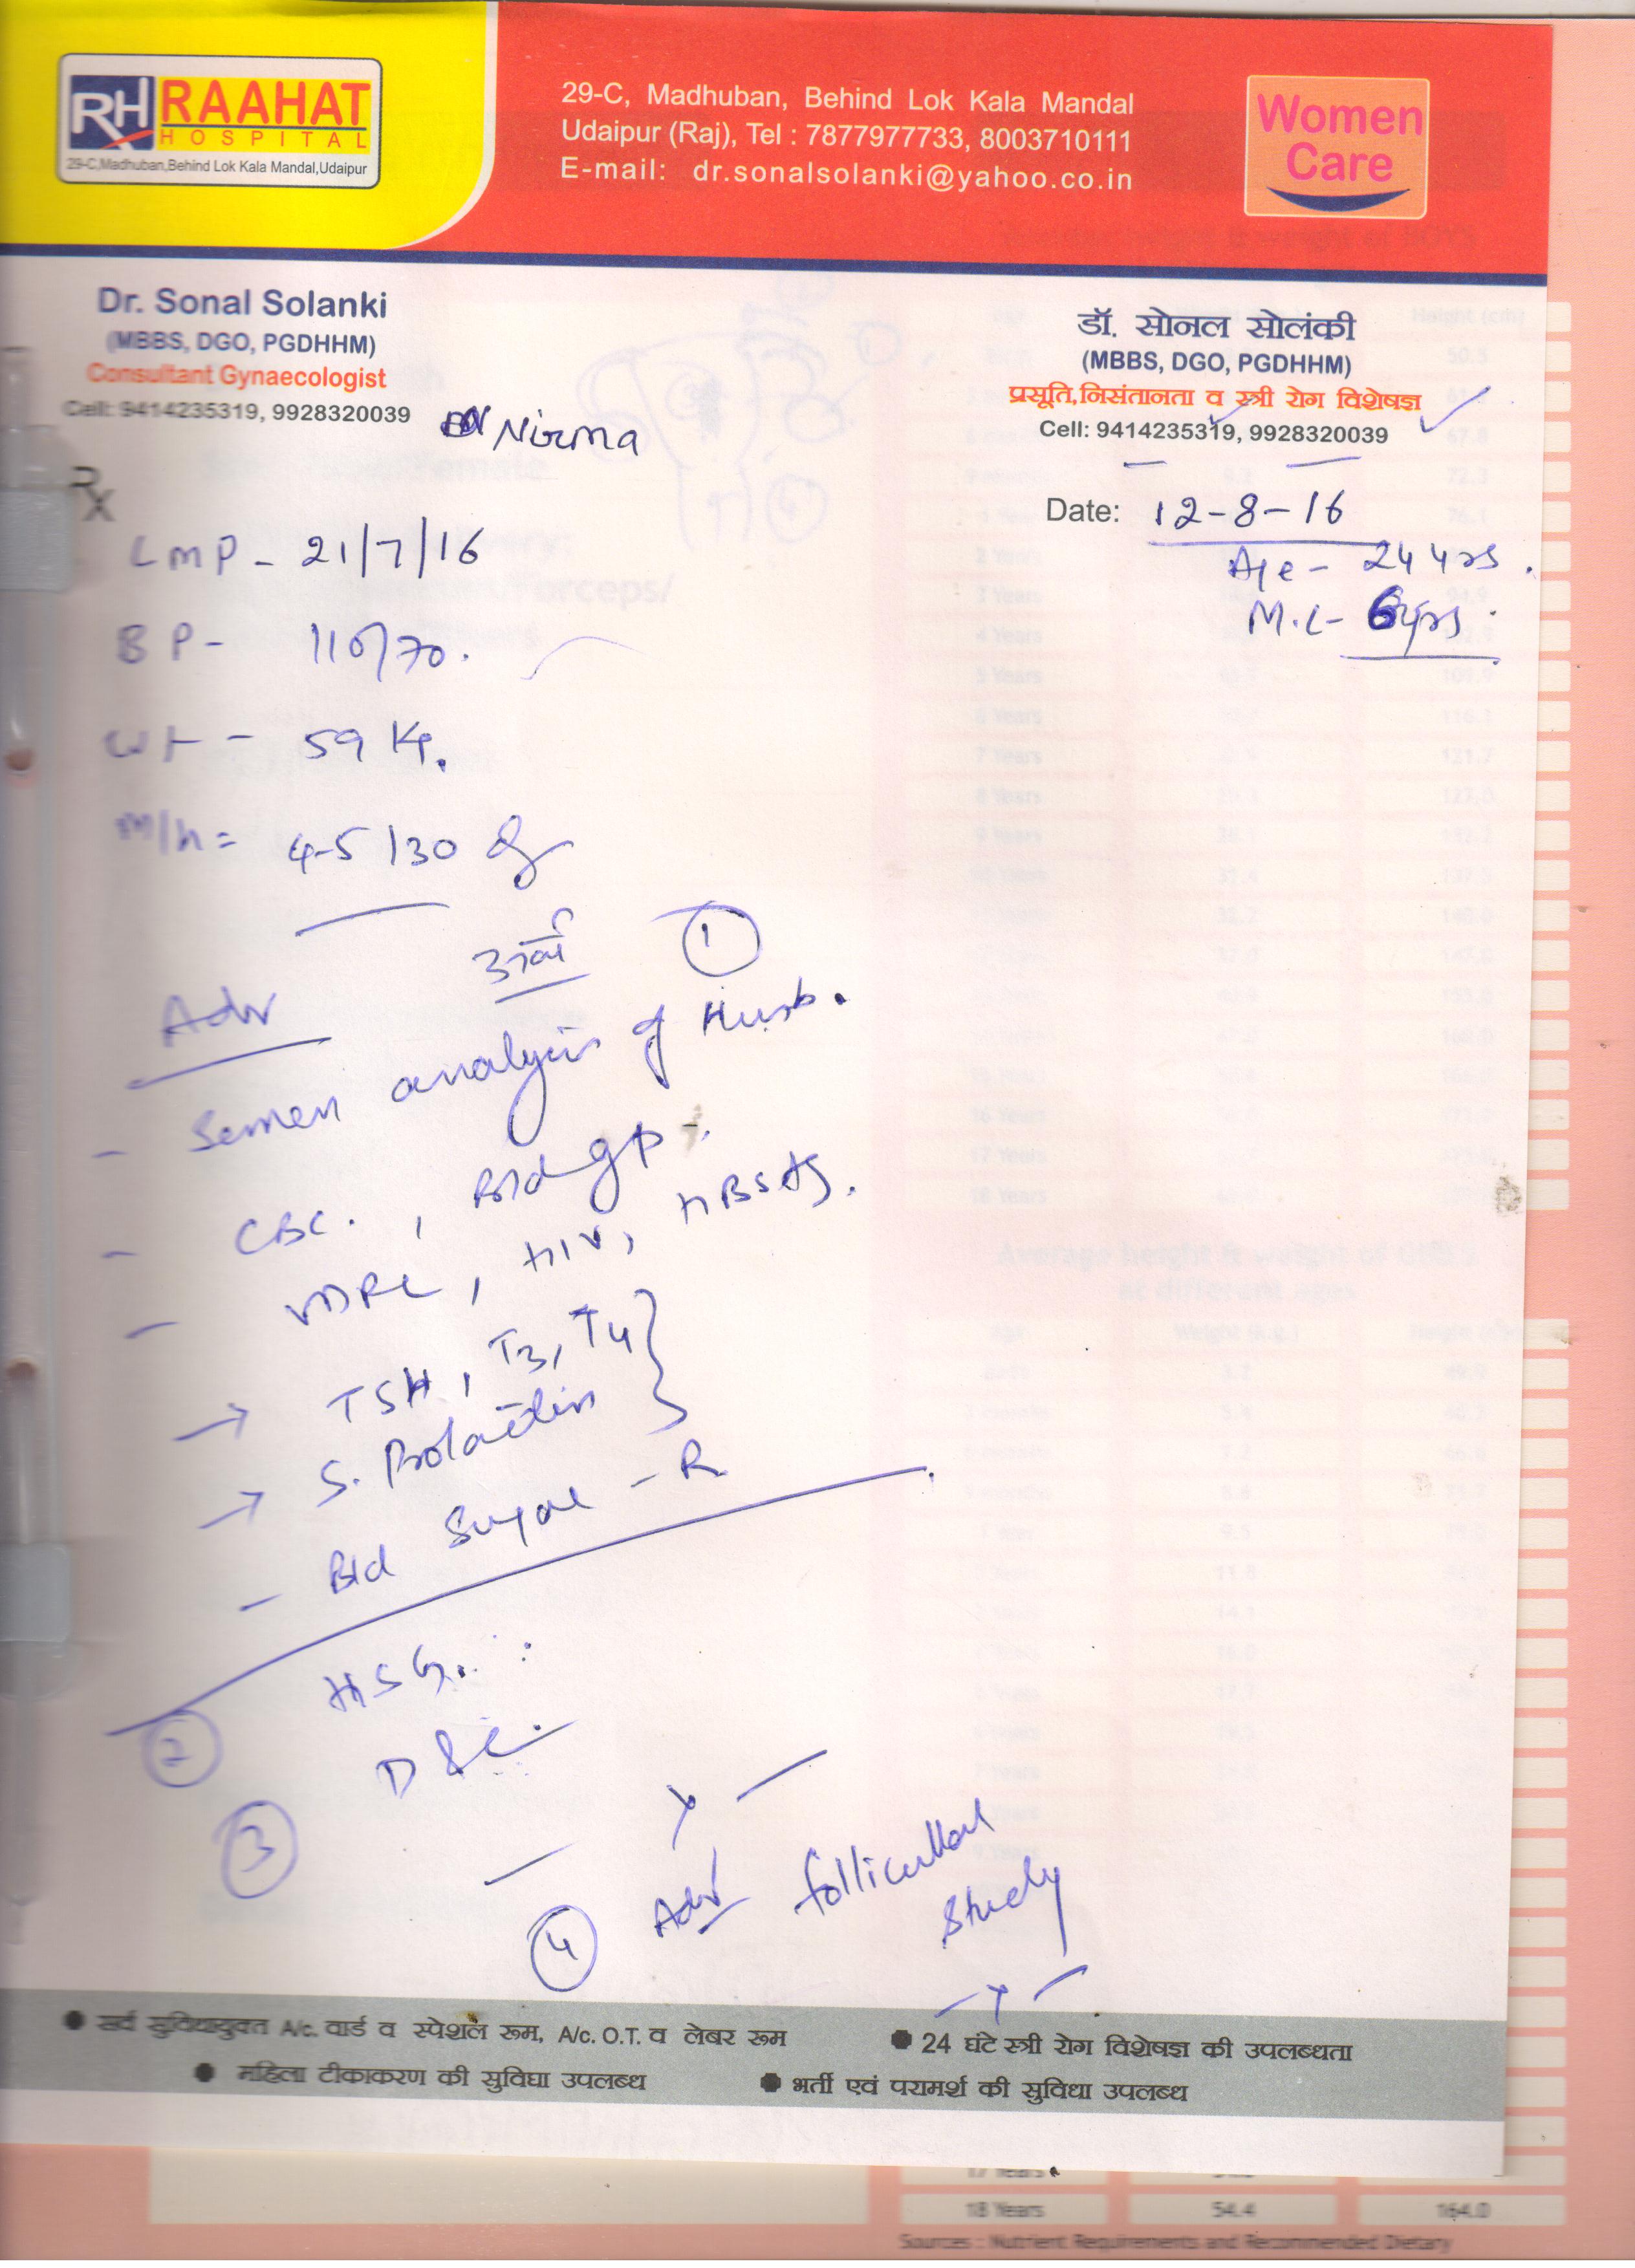 RH RAAHAT
HOSPITAL
29-C,Madhuban,Behind Lok Kala Mandal,Udaipur
29-C, Madhuban, Behind Lok Kala Mandal
Udaipur (Raj), Tel : 7877977733, 8003710111
E-mail: dr.sonalsolanki@yahoo.co.in
Women
Care
Dr. Sonal Solanki
(MBBS, DGO, PGDHHM)
Consultant Gynaecologist
Cell: 9414235319, 9928320039
डॉ. सोनल सोलंकी
(MBBS, DGO, PGDHHM)
प्रसूति,निसंतानता व स्त्री रोग विशेषज्ञ
Cell: 9414235319, 9928320039
Nirma
Rx
Date: 12-8-16
Age - 24 yrs.
M.L- 6yrs.
LMP - 21/7/16
BP - 110/70.
wt - 59 Kg.
M/h = 4-5/30
①
Adv
- Semen analysis of Husb.
- CBC. , Bld gp.
- VDRL, HIV, HBsAg.
→ TSH, T3, T4
→ S. Prolactin
- Bld Sugar - R
② HSG.
③ D&C.
- x -
④ Adv follicullar
Study
- x -
सर्व सुविधायुक्त A/c. वार्ड व स्पेशल रूम, A/c. O.T. व लेबर रूम
24 घंटे स्त्री रोग विशेषज्ञ की उपलब्धता
महिला टीकाकरण की सुविधा उपलब्ध
भर्ती एवं परामर्श की सुविधा उपलब्ध
17 Years
18 Years 54.4 164.0
Sources : Nutrient Requirements and Recommended Dietary